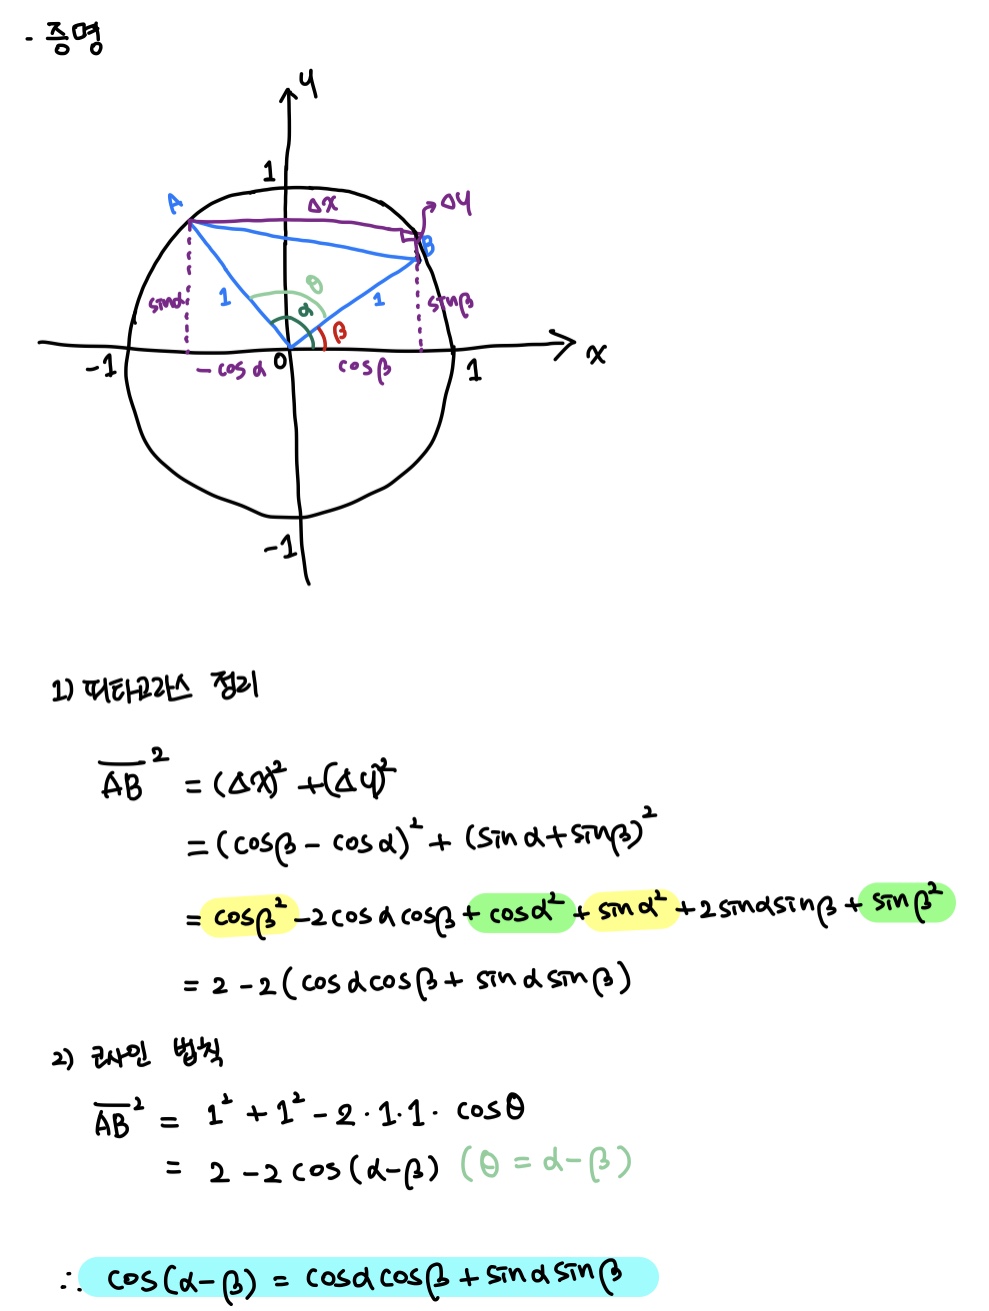 - 증명
y
1
A
Δx
Δy
B
θ
sinα
1
α
1
sinβ
β
-1
-cosα
0
cosβ
1
x
-1
1) 피타고라스 정리
AB² = (Δx)² + (Δy)²
= (cosβ - cosα)² + (sinα + sinβ)²
= cosβ² - 2cosαcosβ + cosα² + sinα² + 2sinαsinβ + sinβ²
= 2 - 2(cosαcosβ + sinαsinβ)
2) 코사인 법칙
AB² = 1² + 1² - 2·1·1· cosθ
= 2 - 2cos(α-β) (θ = α-β)
∴ cos(α-β) = cosαcosβ + sinαsinβ